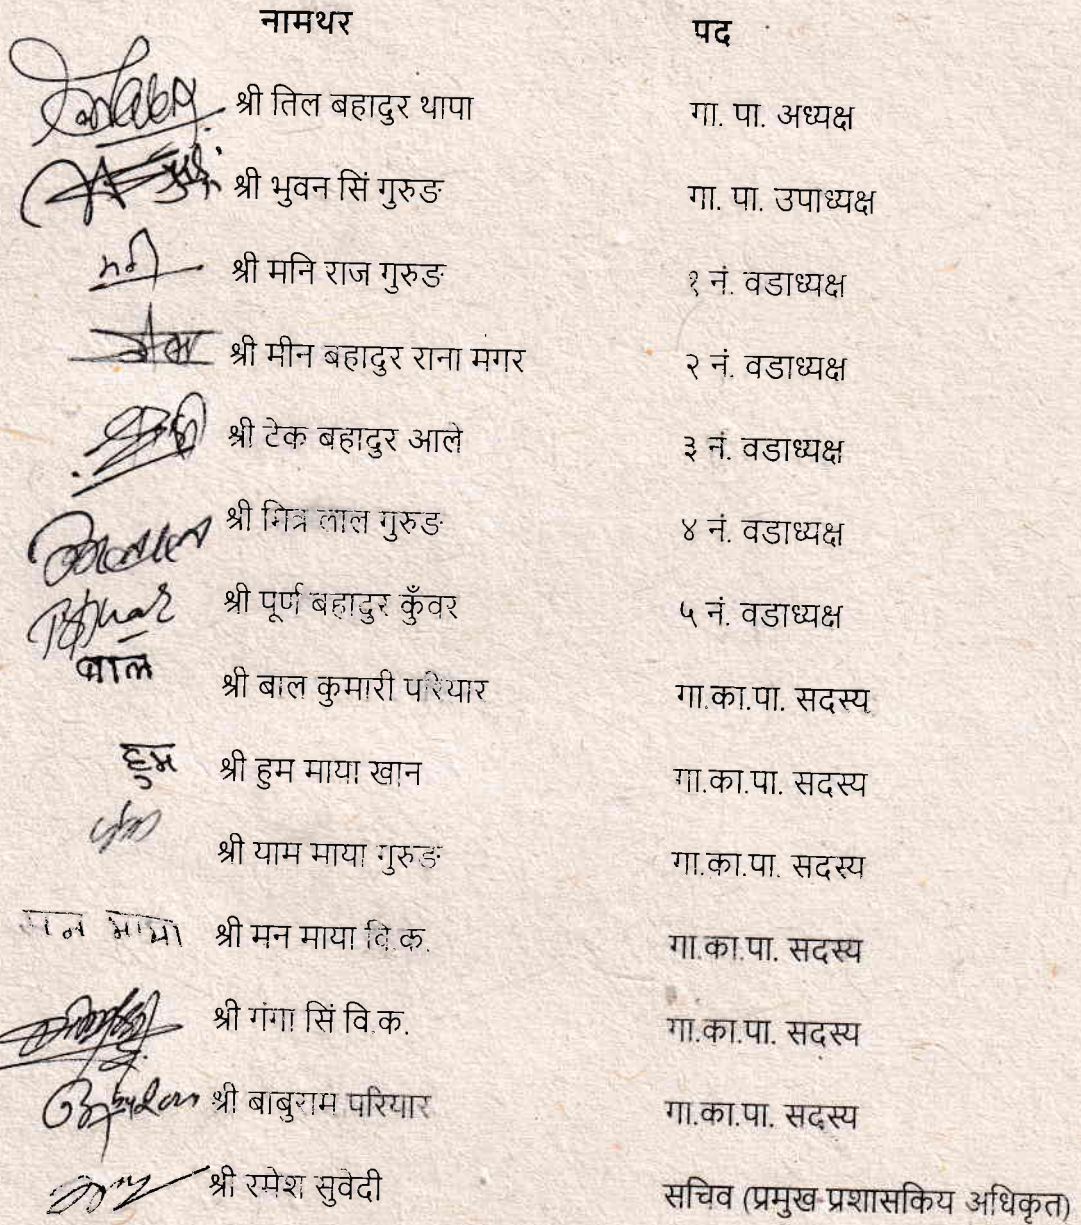 नामथर पद
श्री तिल बहादुर थापा गा. पा. अध्यक्ष
श्री भुवन सिं गुरुङ गा. पा. उपाध्यक्ष
श्री मनि राज गुरुङ १ नं. वडाध्यक्ष
श्री मीन बहादुर राना मगर २ नं. वडाध्यक्ष
श्री टेक बहादुर आले ३ नं. वडाध्यक्ष
श्री मित्र लाल गुरुङ ४ नं. वडाध्यक्ष
श्री पूर्ण बहादुर कुँवर ५ नं. वडाध्यक्ष
बाल श्री बाल कुमारी परियार गा.का.पा. सदस्य
हुम श्री हुम माया खान गा.का.पा. सदस्य
श्री याम माया गुरुङ गा.का.पा. सदस्य
मन माया श्री मन माया वि.क. गा.का.पा. सदस्य
श्री गंगा सिं वि.क. गा.का.पा. सदस्य
श्री बाबुराम परियार गा.का.पा. सदस्य
श्री रमेश सुवेदी सचिव (प्रमुख प्रशासकिय अधिकृत)